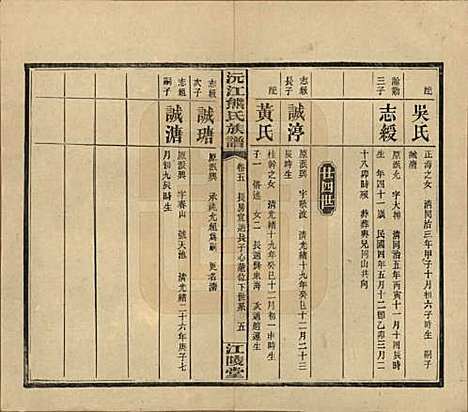 配
吳氏
正海之女 清同治三年甲子十月初六子時生 嗣子
誠溏
三子
志緩
原派錫 字大神 清同治五年丙寅十一月十四辰時
生 年四十一歲 民國四年五月十二即乙卯三月二
十八卯時歿 葬葬與兄同山共向
廿四世
志緩
長子
誠渟
原派興 字職波 清光緒十九年癸巳十二月二十三
辰時生
配
黃氏
桂幹之女 清光緒十九年癸巳十一月初一申時生
子一 傳述 女二 長適龔東海 次適趙運生
沅江熊氏族譜
卷五
長房宣適長子心啟位下世系
五
江陵堂
志緩
次子
誠瑭
原派興 承兆允組爲嗣 更名清
志緩
嗣子
誠溏
原派興 字春山 號天池 清光緒二十六年庚子七
月初九辰時生